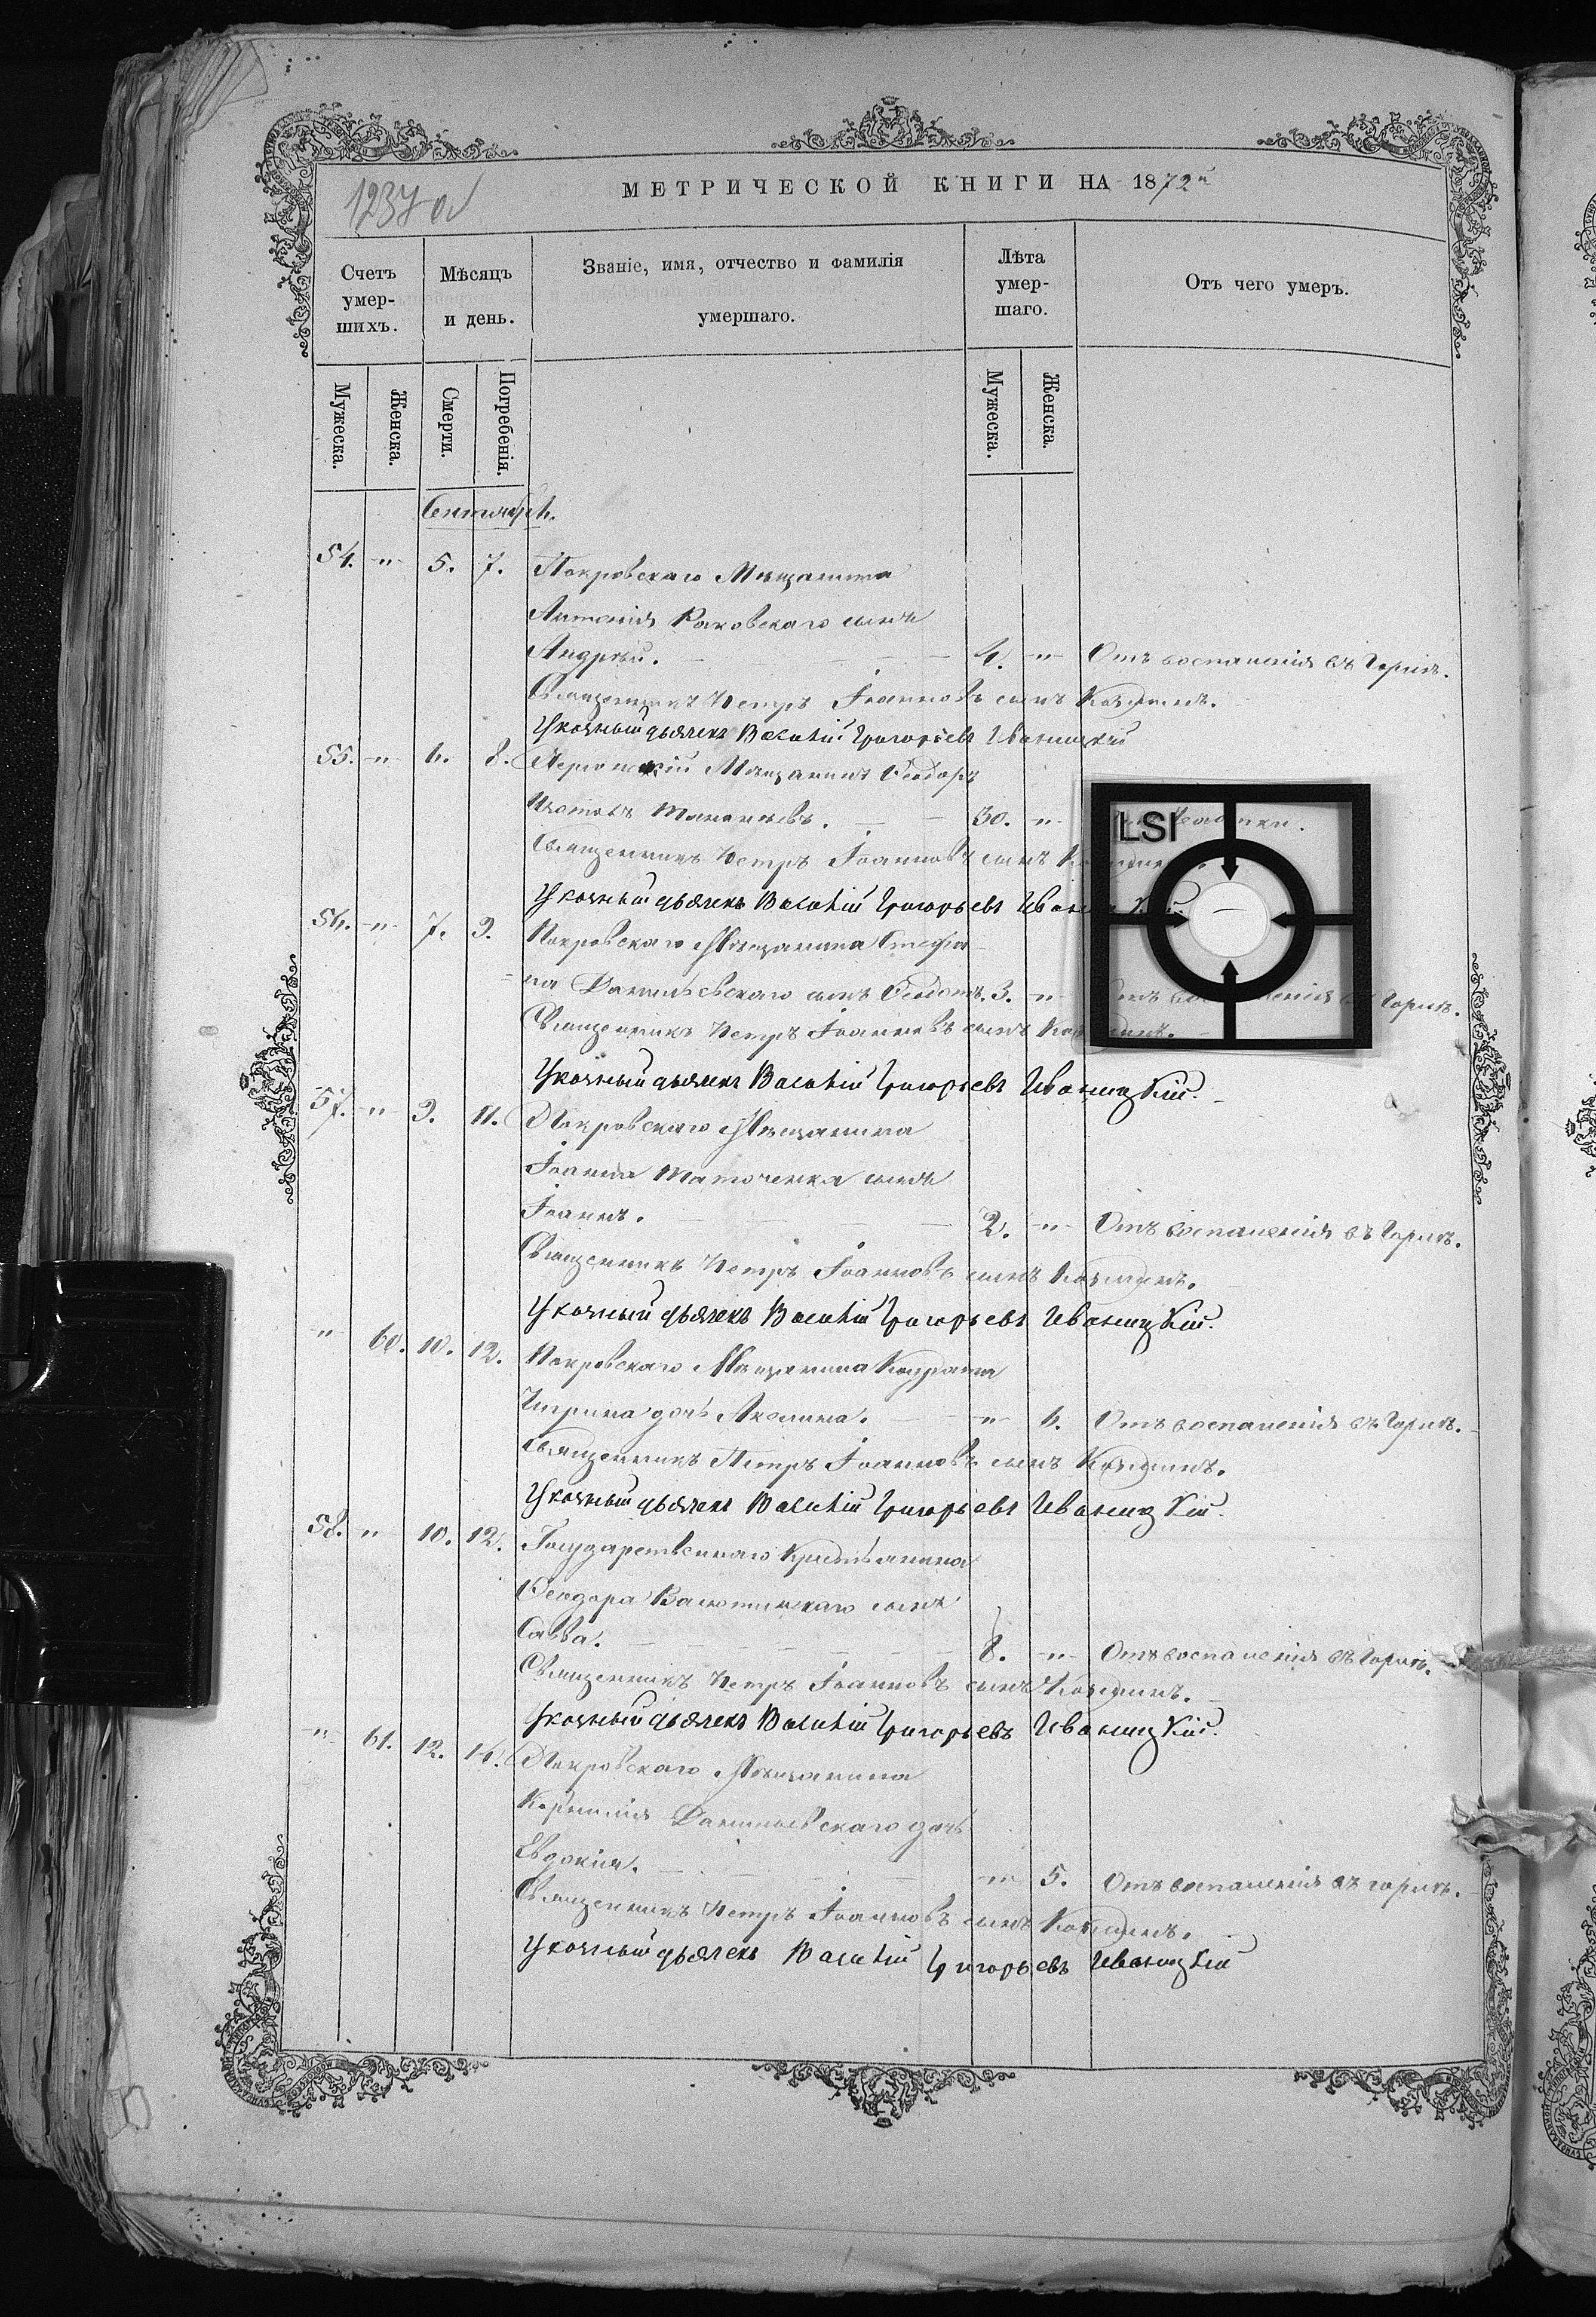 1237 об
МЕТРИЧЕСКОЙ КНИГИ НА 1872й
Счетъ умер-шихъ.
Мѣсяцъ и день.
Званіе, имя, отчество и фамилія умершаго.
Лѣта умер-шаго.
Отъ чего умеръ.
Мужеска.
Женска.
Смерти.
Погребенія.
Мужеска.
Женска.
Сентябрь.
54. " 5. 7. Покровскаго Мѣщанина
Антонія Раковскаго сынъ
Андрей. 4. " Отъ воспаленія въ Горлѣ.
Священникъ Петръ Іоанновъ сынъ
Указный дьячекъ Василій Григорьевъ Иваницкій
55. " 6. 8. Мѣщанинъ Ѳеодоръ
30. "
Священникъ Петръ Іоанновъ сынъ
Указный дьячекъ Василій Григорьевъ Иваницкій.
56. " 7. 9. Покровскаго Мѣщанина Стефа-
-на Данильевскаго сынъ Ѳеодотъ. 3. " Отъ воспаленія въ Горлѣ.
Священникъ Петръ Іоанновъ сынъ
Указный дьячекъ Василій Григорьевъ Иваницкій.
57. " 9. 11. Покровскаго Мѣщанина
Іоанна Маточенка сынъ
Іоаннъ. 2. " Отъ воспаленія въ Горлѣ.
Священникъ Петръ Іоанновъ сынъ
Указный дьячекъ Василій Григорьевъ Иваницкій.
" 60. 10. 12. Покровскаго Мѣщанина Кондрата
дочь Акилина. " 6. Отъ воспаленія въ Горлѣ.
Священникъ Петръ Іоанновъ сынъ
Указный дьячекъ Василій Григорьевъ Иваницкій.
58. " 10. 12. Государственнаго Крестьянина
Ѳеодора сынъ
Савва. 8. " Отъ воспаленія въ Горлѣ.
Священникъ Петръ Іоанновъ сынъ
Указный дьячекъ Василій Григорьевъ Иваницкій.
" 61. 12. 14. Покровскаго Мѣщанина
Корнилія Данильевскаго дочь
Евдокія. " 5. Отъ воспаленія въ горлѣ.
Священникъ Петръ Іоанновъ сынъ
Указный дьячекъ Василій Григорьевъ Иваницкій
LSI